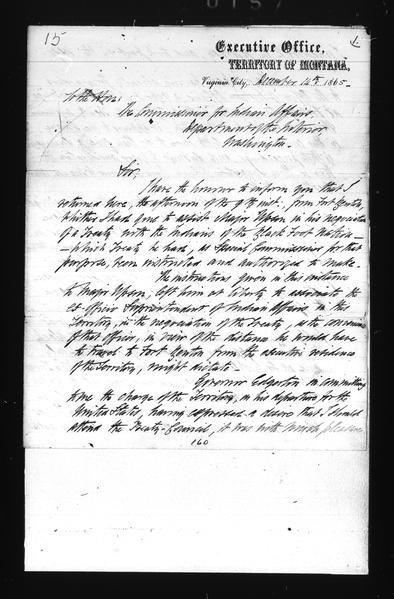 15
Executive Office,
TERRITORY OF MONTANA,
Virginia City, December 14th 1865-
To the Hon:
The Commissioner for Indian Affairs
Department of the Interior
Washington.
Sir,
I have the honour to inform you that I
returned here, the afternoon of the 9th inst. from Fort Benton,
whither I had gone to assist Major Upson in his negociation
of a Treaty with the Indians of the Black Foot Nation-
-which Treaty he had, as Special Commissioner for that
purpose, been instructed and authorized to make.
The instructions given in this instance
to Major Upson, left him at liberty to associate the
ex officio Superintendent of Indian Affairs in this
Territory, in the negociation of the Treaty, as the convenience
of that officer, in view of the distance he would have
to travel to Fort Benton from the executive residence
of the Territory, might dictate-
Governor Edgerton in committing
to me the charge of the Territory, on his departure for the
United States, having expressed a desire that I should
attend the Treaty-Council, it was with much pleasure
160